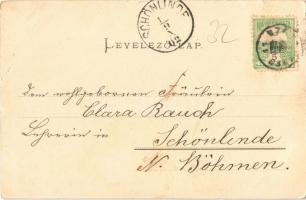 SCHÖNLINDE
32
LEVELEZŐ LAP.
Dem wohlgebornen Fräulein
Clara Rauch
Lehrerin in
Schönlinde
N. Böhmen.